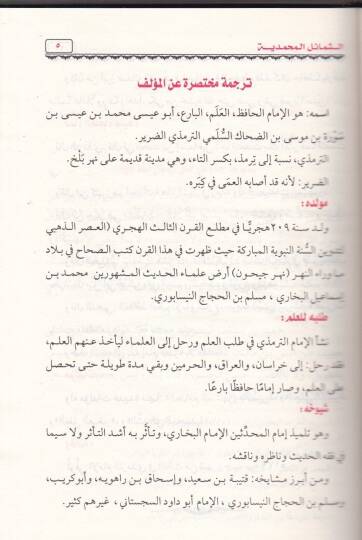 الشمائل المحمدية
٥
ترجمة مختصرة عن المؤلف
اسمه: هو الإمام الحافظ، العَلَم، البارع، أبو عيسى محمد بن عيسى بن
سَوْرَة بن موسى بن الضحاك السُّلَمي الترمذي الضرير.
الترمذي، نسبة إلى تِرمذ، بكسر التاء، وهي مدينة قديمة على نهر بَلْخ.
الضرير: لأنه قد أصابه العمَى في كِبَره.
مولده:
ولد سنة ٢٠٩ هجريًّا في مطلع القرن الثالث الهجري (العصر الذهبي
لتدوين السُّنة النبوية المباركة حيث ظهرت في هذا القرن كتب الصحاح في بلاد
ما وراء النهر (نهر جيحون) أرض علماء الحديث المشهورين محمد بن
إسماعيل البخاري، مسلم بن الحجاج النيسابوري.
طلبه للعلم:
نشأ الإمام الترمذي في طلب العلم ورحل إلى العلماء ليأخذ عنهم العلم،
فقد رحل: إلى خراسان، والعراق، والحرمين وبقي مدة طويلة حتى تحصل
على العلم، وصار إمامًا حافظًا بارعًا.
شيوخه:
وهو تلميذ إمام المحدِّثين الإمام البخاري، وتأثَّر به أشد التأثر ولا سيما
في فقه الحديث وناظره وناقشه.
ومن أبرز مشايخه: قتيبة بن سعيد، وإسحاق بن راهويه، وأبو كريب،
ومسلم بن الحجاج النيسابوري، الإمام أبو داود السجستاني، غيرهم كثير.